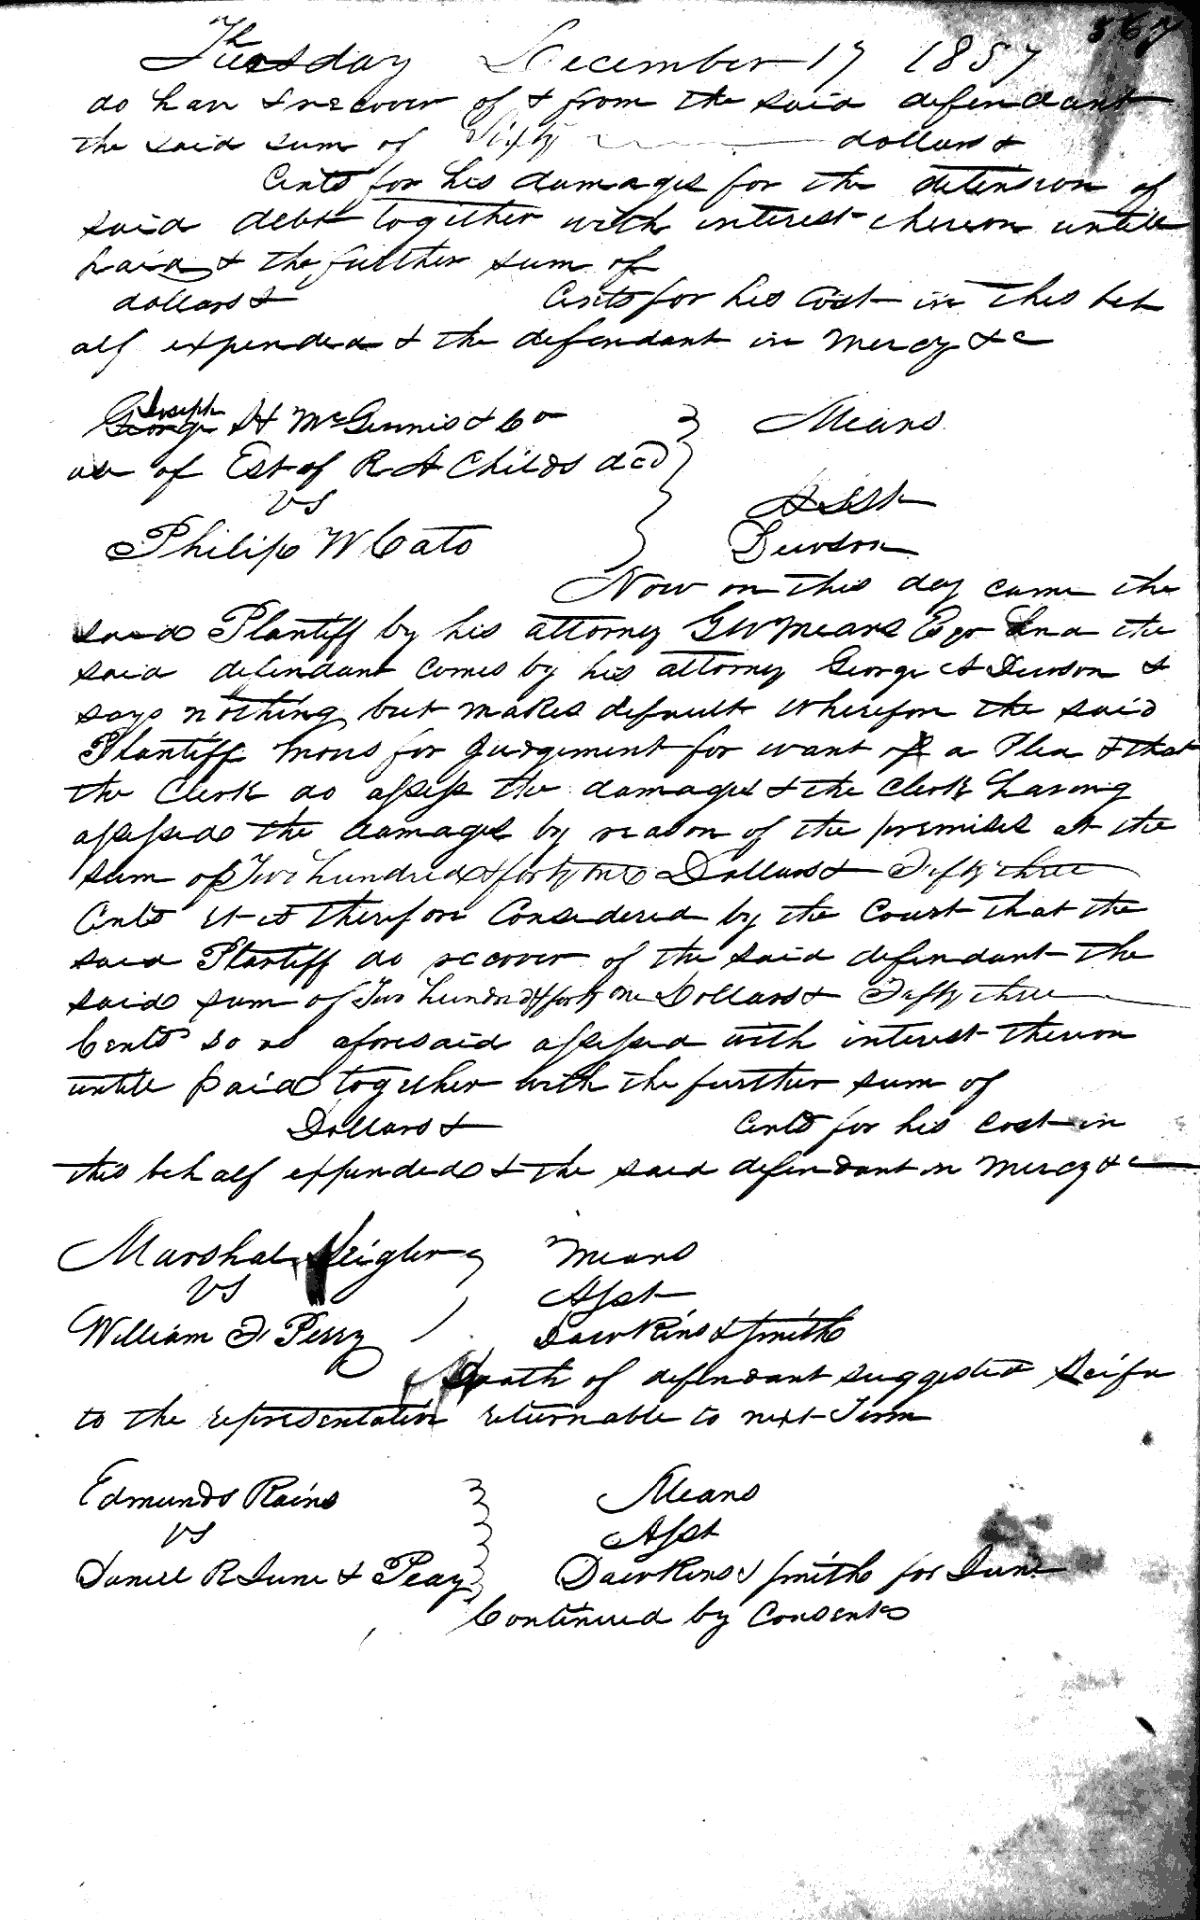 567
Thursday December 17 1857
do have & recover of & from the said defendant
the said sum of Sixty dollars &
Cents for his damages for the detension of
said debt together with interest thereon untill
paid & the further sum of
dollars & Cents for his Cost in this beh
alf expended & the defendant in mercy &c
Joseph
George H McGinnis & Co Means
use of Est of R A Childs dcd
vs Asst
Philip W Cato Dewson
Now on this day came the
said Plantiff by his attorney G W Means Esqr And the
said defendant comes by his attorney George A Dewson &
says nothing but makes default Wherefore the said
Plantiff moves for Judgement for want of a Plea & that
the Clerk do assess the damages & the Clerk having
assessed the damages by reason of the premises at the
sum of Two hundred & forty one Dollars & Fifty three
Cents it is therefore Considered by the Court that the
said Plantiff do recover of the said defendant the
said sum of Two hundred & forty one Dollars & Fifty three
Cents so as aforesaid assessed with interest thereon
untill paid together with the further sum of
Dollars & Cents for his Cost in
this behalf expended & the said defendant in mercy &c
Marshal Zeigler Means
vs Asst
William F Perry Dawkins & Smith
Death of defendant suggested Scifa
to the representative returnable to next Term
Edmunds Rains Means
vs Asst
Daniel R June & Peay Dawkins & Smith for June
Continued by Consents